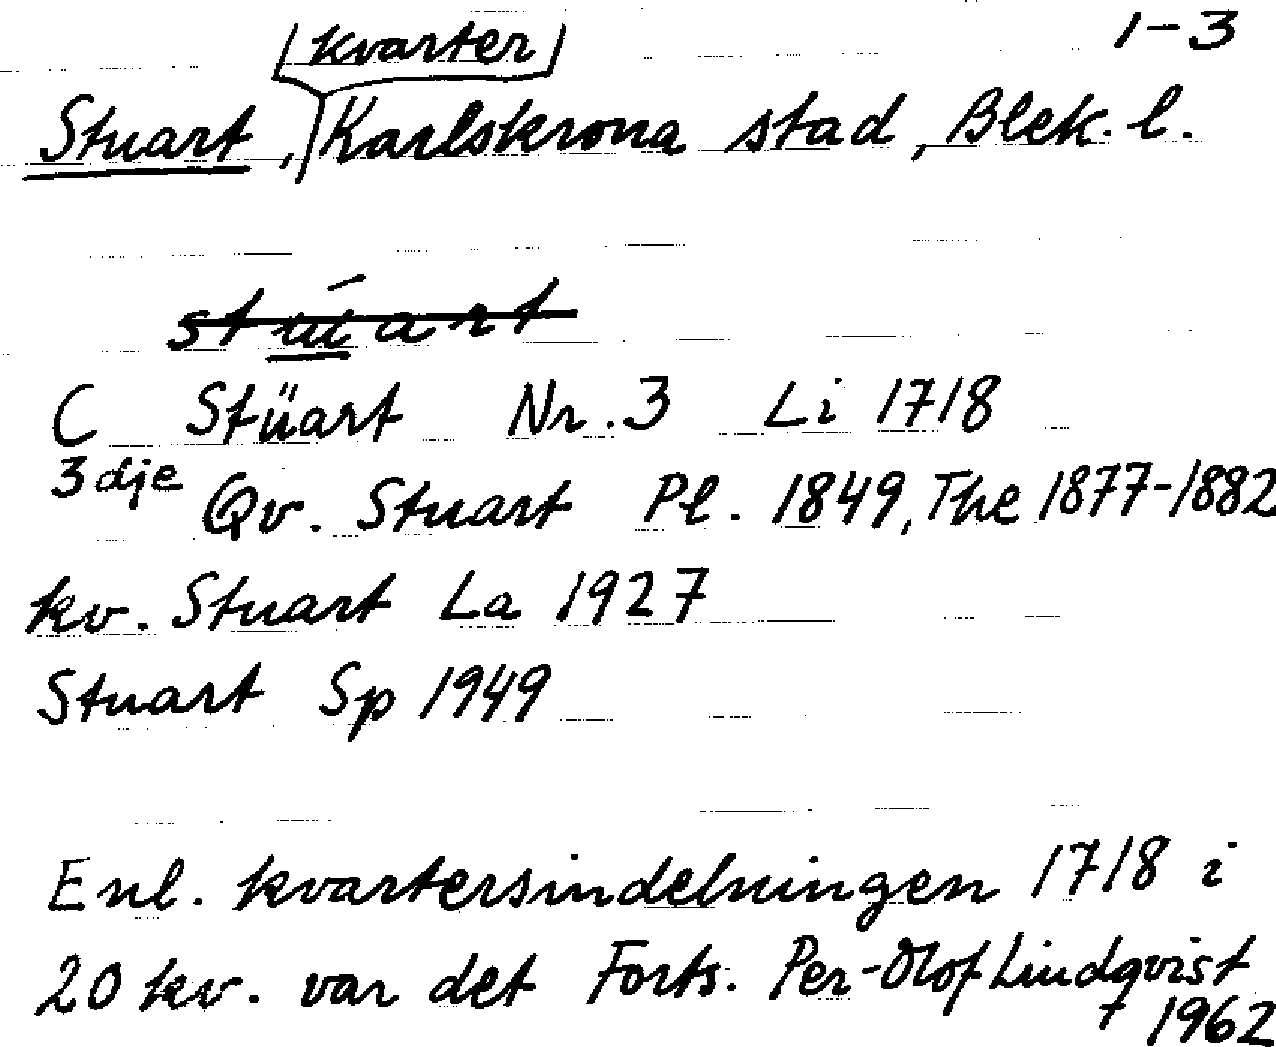 kvarter 1-3
Stuart, Karlskrona stad, Blek. l.
stǘart
C Stüart Nr. 3 Li 1718
3dje Qv. Stuart Pl. 1849, The 1877-1882
kv. Stuart La 1927
Stuart Sp 1949
Enl. kvartersindelningen 1718 i
20 kv. var det Forts. Per-Olof Lindqvist
1962